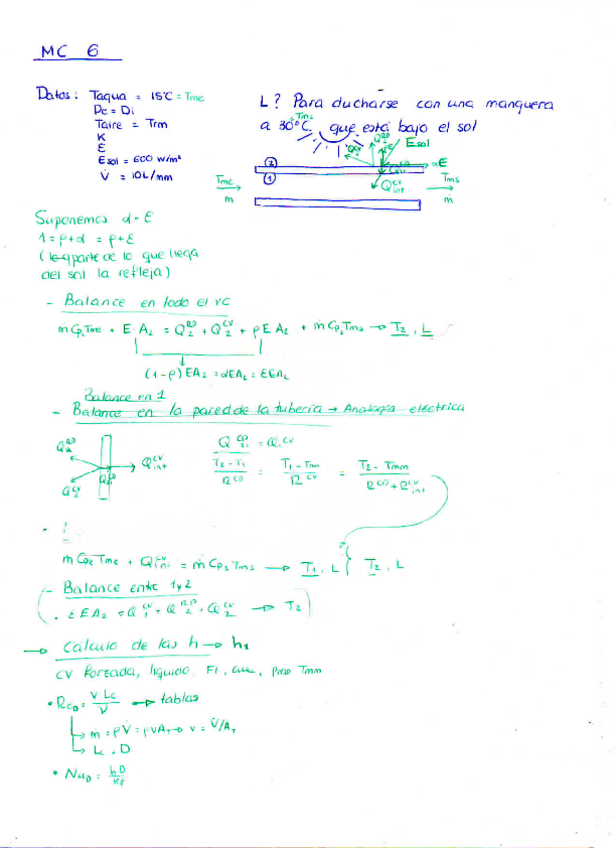 MC 6
Datos: Taqua = 15°C = Tme
De = Di
Taire = Trm
K
ε
Esol = 600 W/m²
V̇ = 10L/mm
L? Para ducharse con una manguera
a 30°C, que está bajo el sol
Tms
Esol
E
αE
②
①
Q int CV
Tme
ṁ
Tms
ṁ
Suponemos α = ε
1 = ρ+α = ρ+ε
(la parte de lo que llega
del sol la refleja)
- Balance en todo el vc
ṁ Cp Tme + E·A₂ = Q₂^RD + Q₂^CV + ρEA₂ + ṁ Cp Tms → T₂, L
(1-ρ)EA₂ = αEA₂ = εEA₂
Balance en 1
- Balance en la pared de la tubería → Analogía eléctrica
Q int CV
T₂-T₁ / R^CD = T₁-Tmm / R^CV = T₂-Tmm / R^CD + R^CV int
ṁ Cp Tme + Q^CV int = ṁ Cp Tms → T₁, L { T₂, L
- Balance entre 1 y 2
( . εEA₂ = Q₁^CV + Q₂^RD + Q₂^CV → T₂ )
→ Cálculo de las h → h₁
CV Forzada, líquido, FI, pido Tmm
• Re_D = v Lc / ν → tablas
ṁ = ρV̇ = ρvA_T → v = V̇/A_T
Lc = D
• Nu_D = hD / Kf